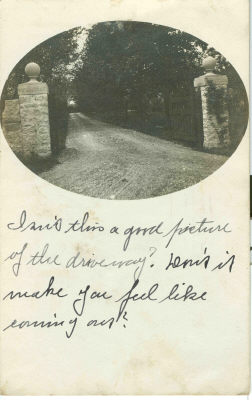 Isn't this a good picture
of the driveway? Don't it
make you feel like
coming out?